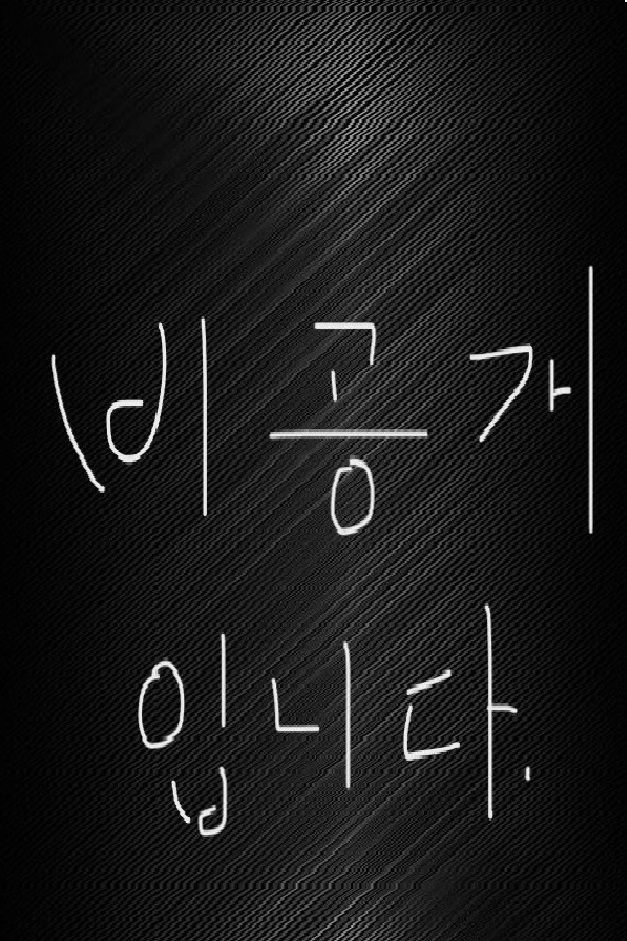 비공개
입니다.